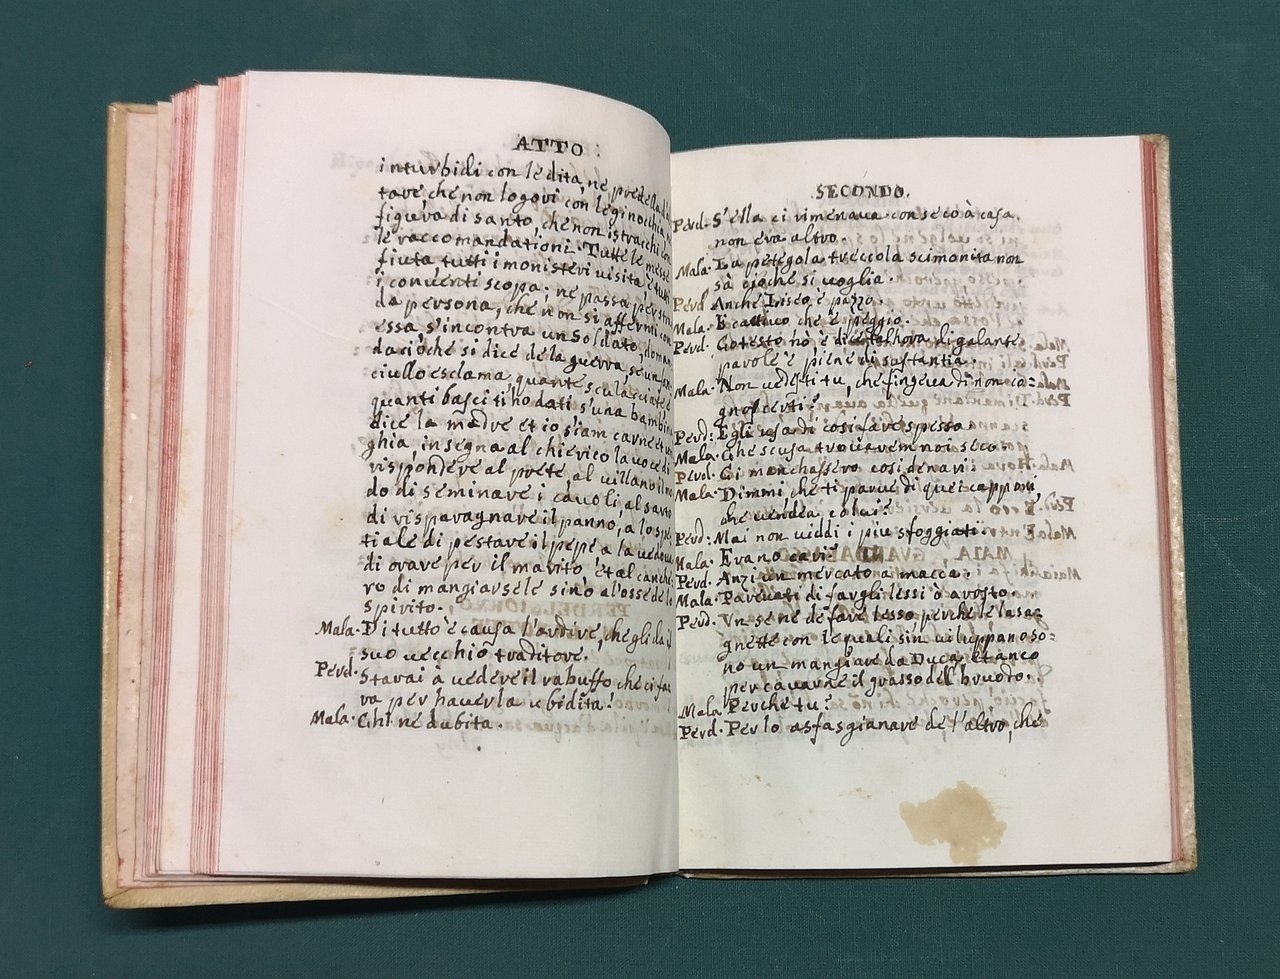 ATTO
inturbidi con le dita, ne predella d'al
tare che non logovi con le ginocchia, ne
figura di santo, che non istracchi con
le raccomandationi. Tutte le messe
fiuta tutti i monisteri visita, e tutti
i conventi scopa; ne passa per strada
da persona, che non si affermi con
essa, s'incontra un soldato, doman
da cioche si dice de la guerra, se un fan
ciullo esclama, quante sculasciate e
quanti basci ti ho dati, s'una bambina
dice la madre et io siam carne et un
ghia, insegna al chierico la voce di
rispondere al prete, al villano il mo
do di seminare i cavoli, al sarto
di risparagnare il panno, a lo spe
tiale di pestare il pepe a la vedova
di orare per il marito et al canche
ro di mangiarsele sino al'osse de lo
spirito.
Mala. Di tutto è causa l'ardire, che gli dà il
suo vecchio traditore.
Perd. Stavai à vedere il rabuffo che ci fa
va per haverla ubidita!
Mala. Chi ne dubita.
SECONDO.
Perd. S'ella ci rimenava con seco à casa.
non era altro.
Mala. La petegola treccola scimonita non
sà cioche si voglia.
Perd. Anche Iriseo è pazzo.
Mala. E cattivo che è peggio.
Perd. Cotesto nò è dicetelhora di galante
parole è piene di sustentia.
Mala. Non vedesti tu, che fingeva di non co=
gnoscerti?
Perd: Egli usa di cosi fare spesso.
Mala. Che scusa trovarem noi seco.
Perd. Ci manchassero cosi denari.
Mala. Dimmi che ti parve di quei capponi,
che vendea colui?
Perd: Mai non viddi i piu sfoggiati.
Mala. Erano cari?
Perd. Anzi un mercato a macca.
Mala. Pareuati di fargli lessi ò arosto.
Perd. Vn se ne de fare lesso perche le lasa=
gnette con le quali si inviluppano so=
no un mangiare da Duca, et anco
per cavarne il grasso dell' bruodo.
Mala. Perche tu?
Perd. Per lo asfasgianare de l'altro, che